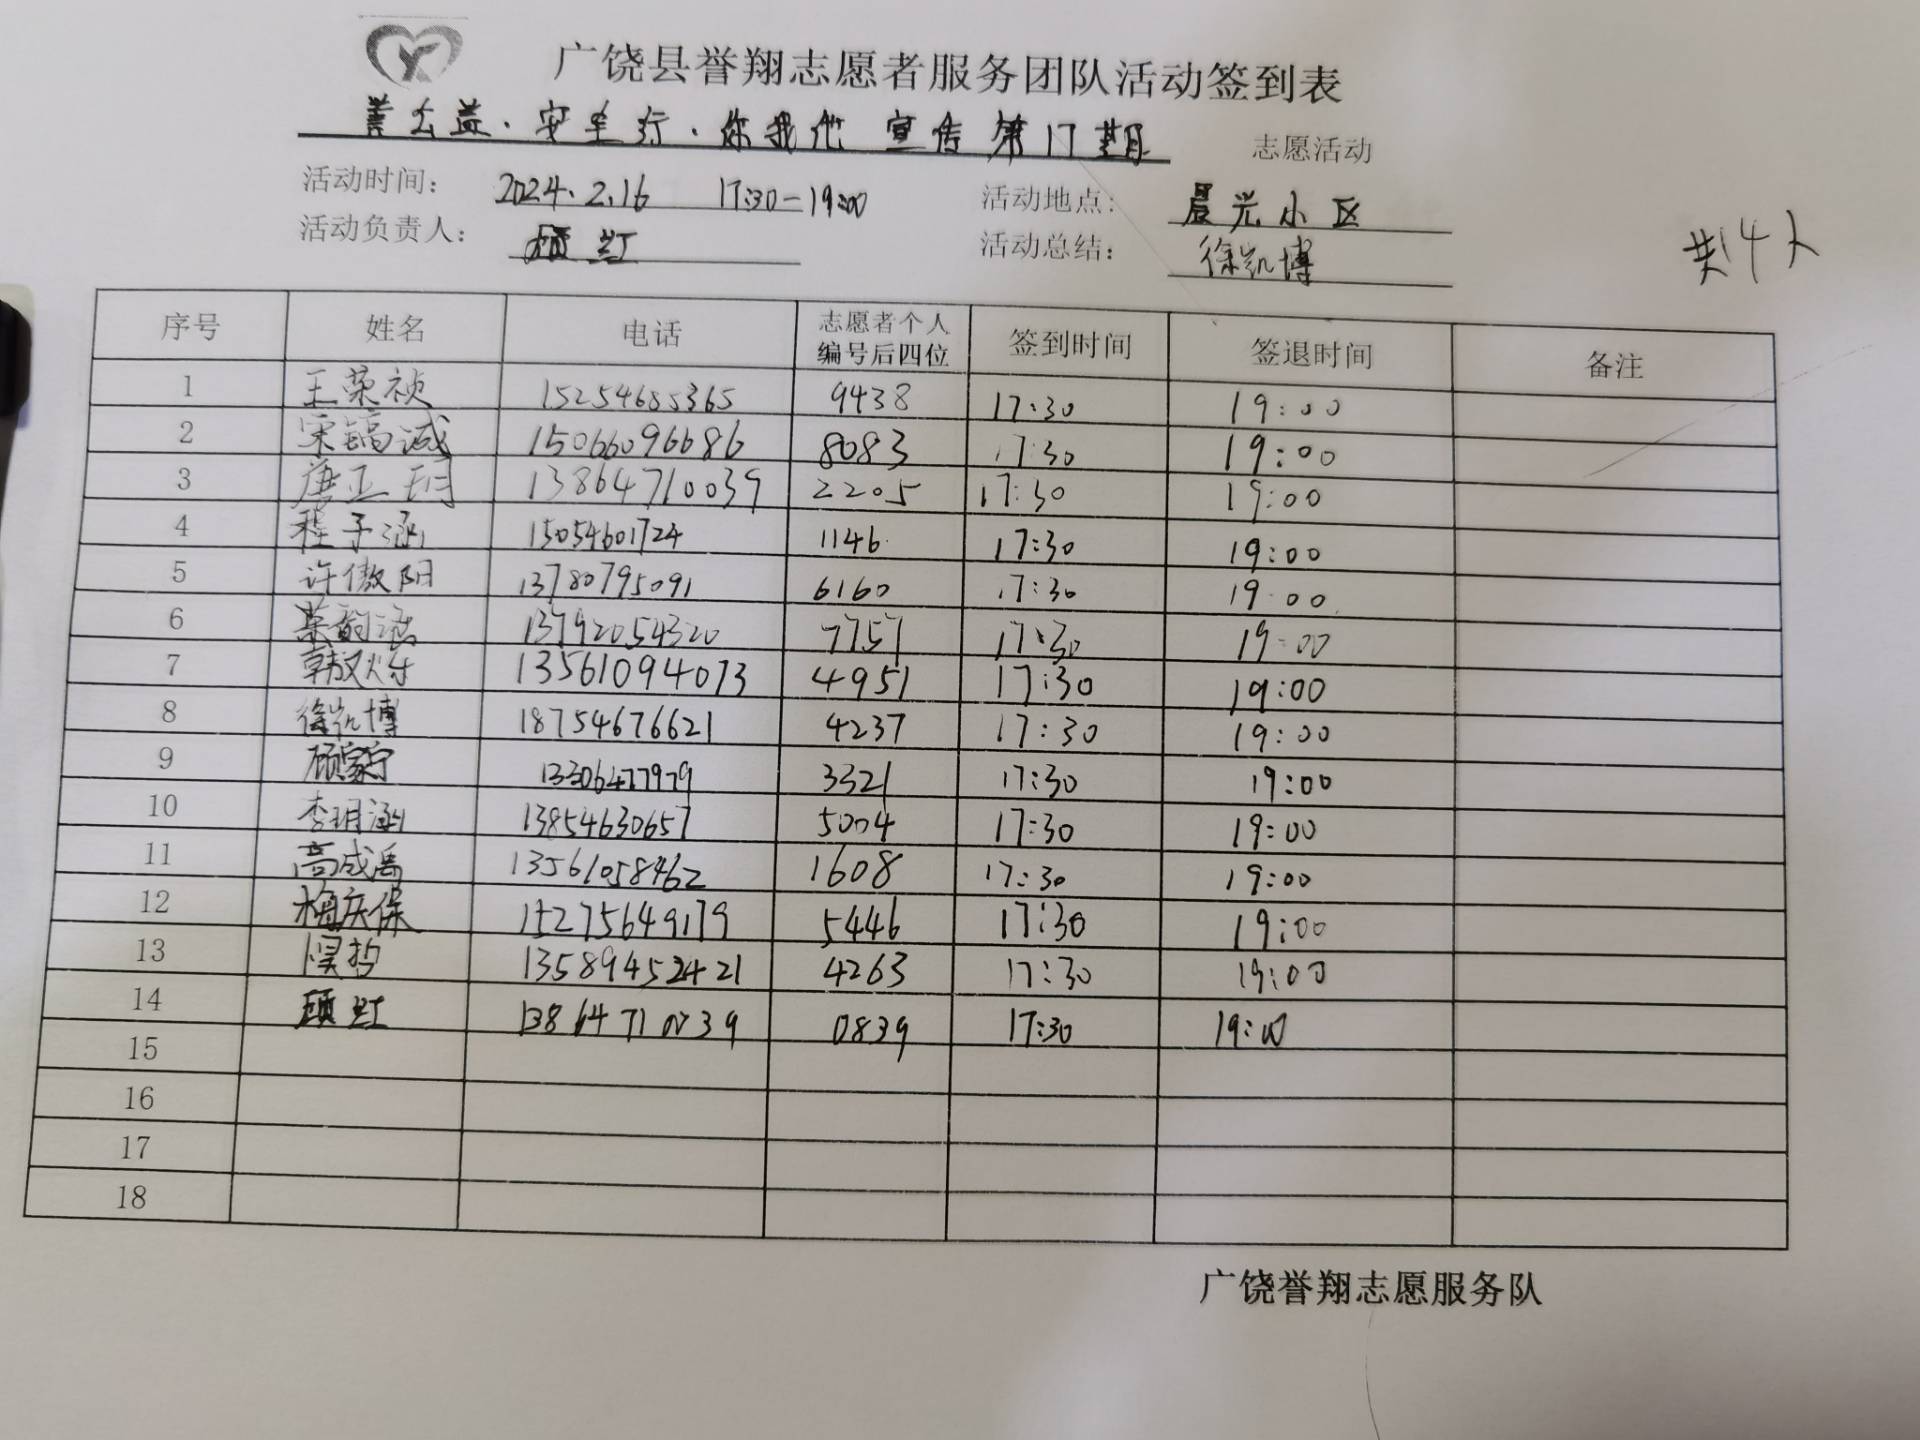 广饶县誉翔志愿者服务团队活动签到表
善公益·安全行·你我他 宣传 第17期 志愿活动
活动时间: 2024.2.16 17:30-19:00 活动地点: 晨光小区
活动负责人: 顾红 活动总结: 徐凯博
共14人
序号 姓名 电话 志愿者个人编号后四位 签到时间 签退时间 备注
1 王荣祯 15254685365 9438 17:30 19:00
2 宋镐诚 15066096686 8083 17:30 19:00
3 唐正玥 13864710039 2205 17:30 19:00
4 程子涵 15054601724 1146 17:30 19:00
5 许傲阳 13780795091 6160 17:30 19:00
6 13792054320 7757 17:30 19:00
7 13561094073 4951 17:30 19:00
8 徐凯博 18754676621 4237 17:30 19:00
9 顾家宁 13306477979 3321 17:30 19:00
10 李玥涵 13854630657 5004 17:30 19:00
11 高成禹 13561058462 1608 17:30 19:00
12 梅庆保 15275649179 5446 17:30 19:00
13 13589452421 4263 17:30 19:00
14 顾红 13864710039 0839 17:30 19:00
15
16
17
18
广饶誉翔志愿服务队